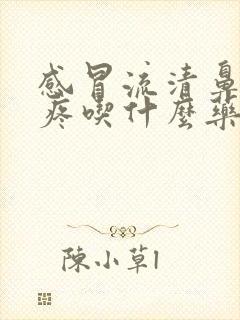 感冒流清鼻
疼喫什麼藥
陳小草1